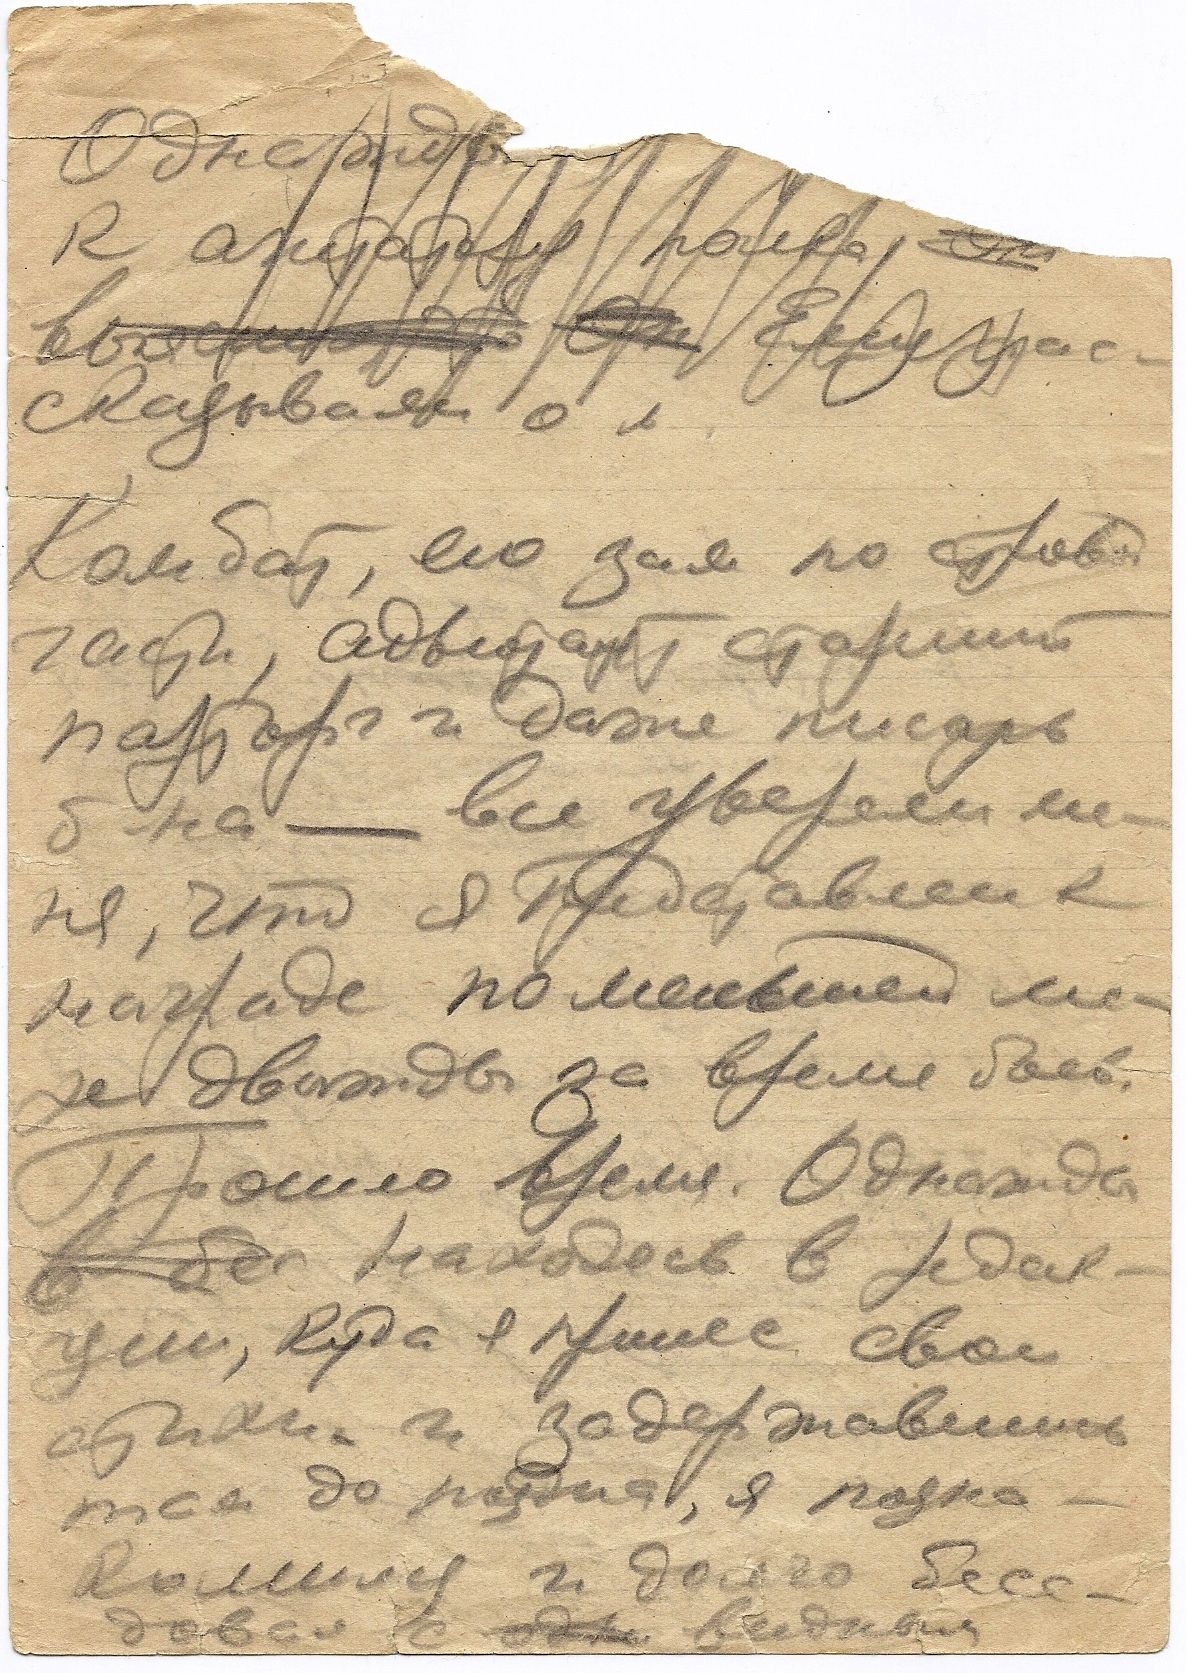 Однажды
к агитатору полка,
Ему рас-
сказывали о
Комбат, его зам по строевой
части, адъютант старший
парторг и даже писарь
б-на — все уверяли ме-
ня, что я представлен к
награде по меньшей ме-
ре дважды за время боев.
Прошло время. Однажды
находясь в редак-
ции, куда я принес свои
стихи и задержавшись
там до поздна, я позна-
комился и долго бесе-
довал с видным